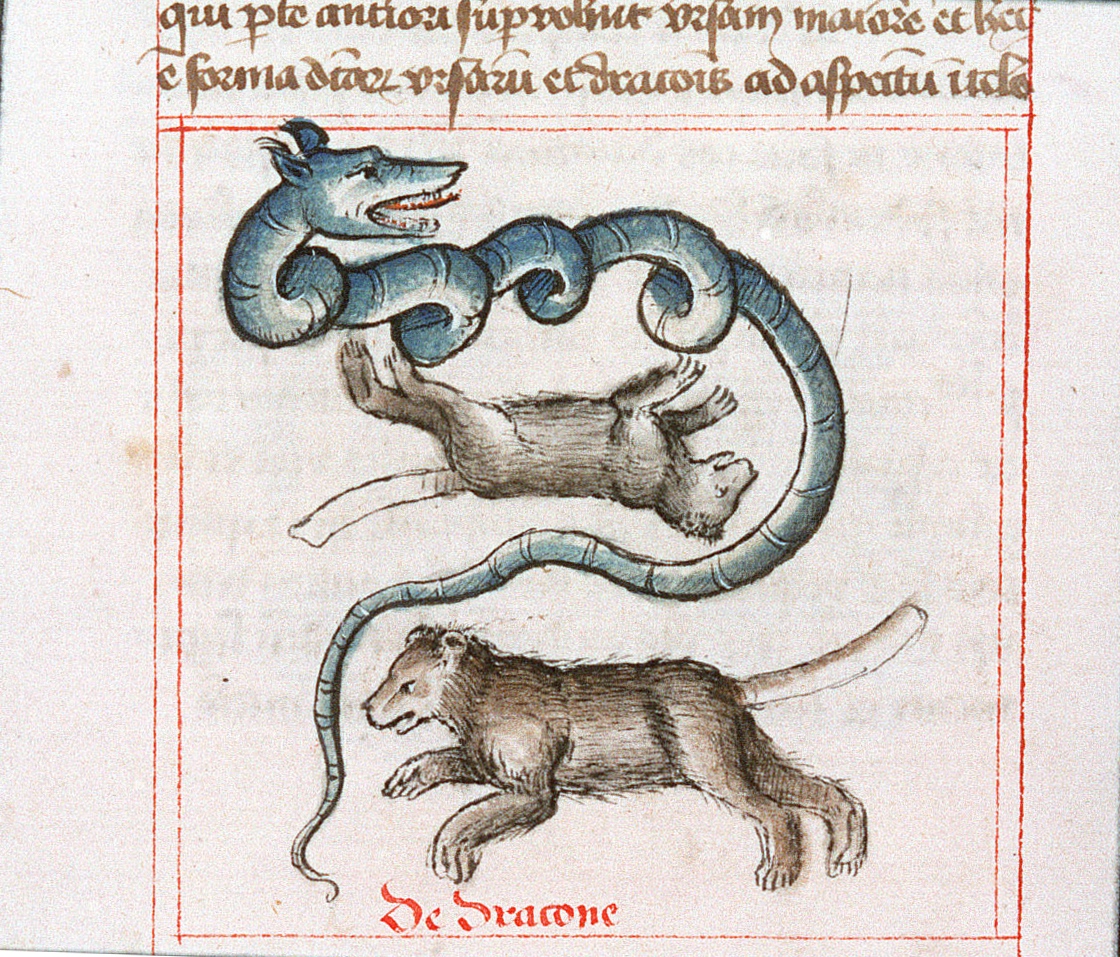 qui p̱te anteriori supvoluit vrsam maiorē et hec
e forma dictoꝝ vrsarū et draconis ad aspectū in celo
De dracone